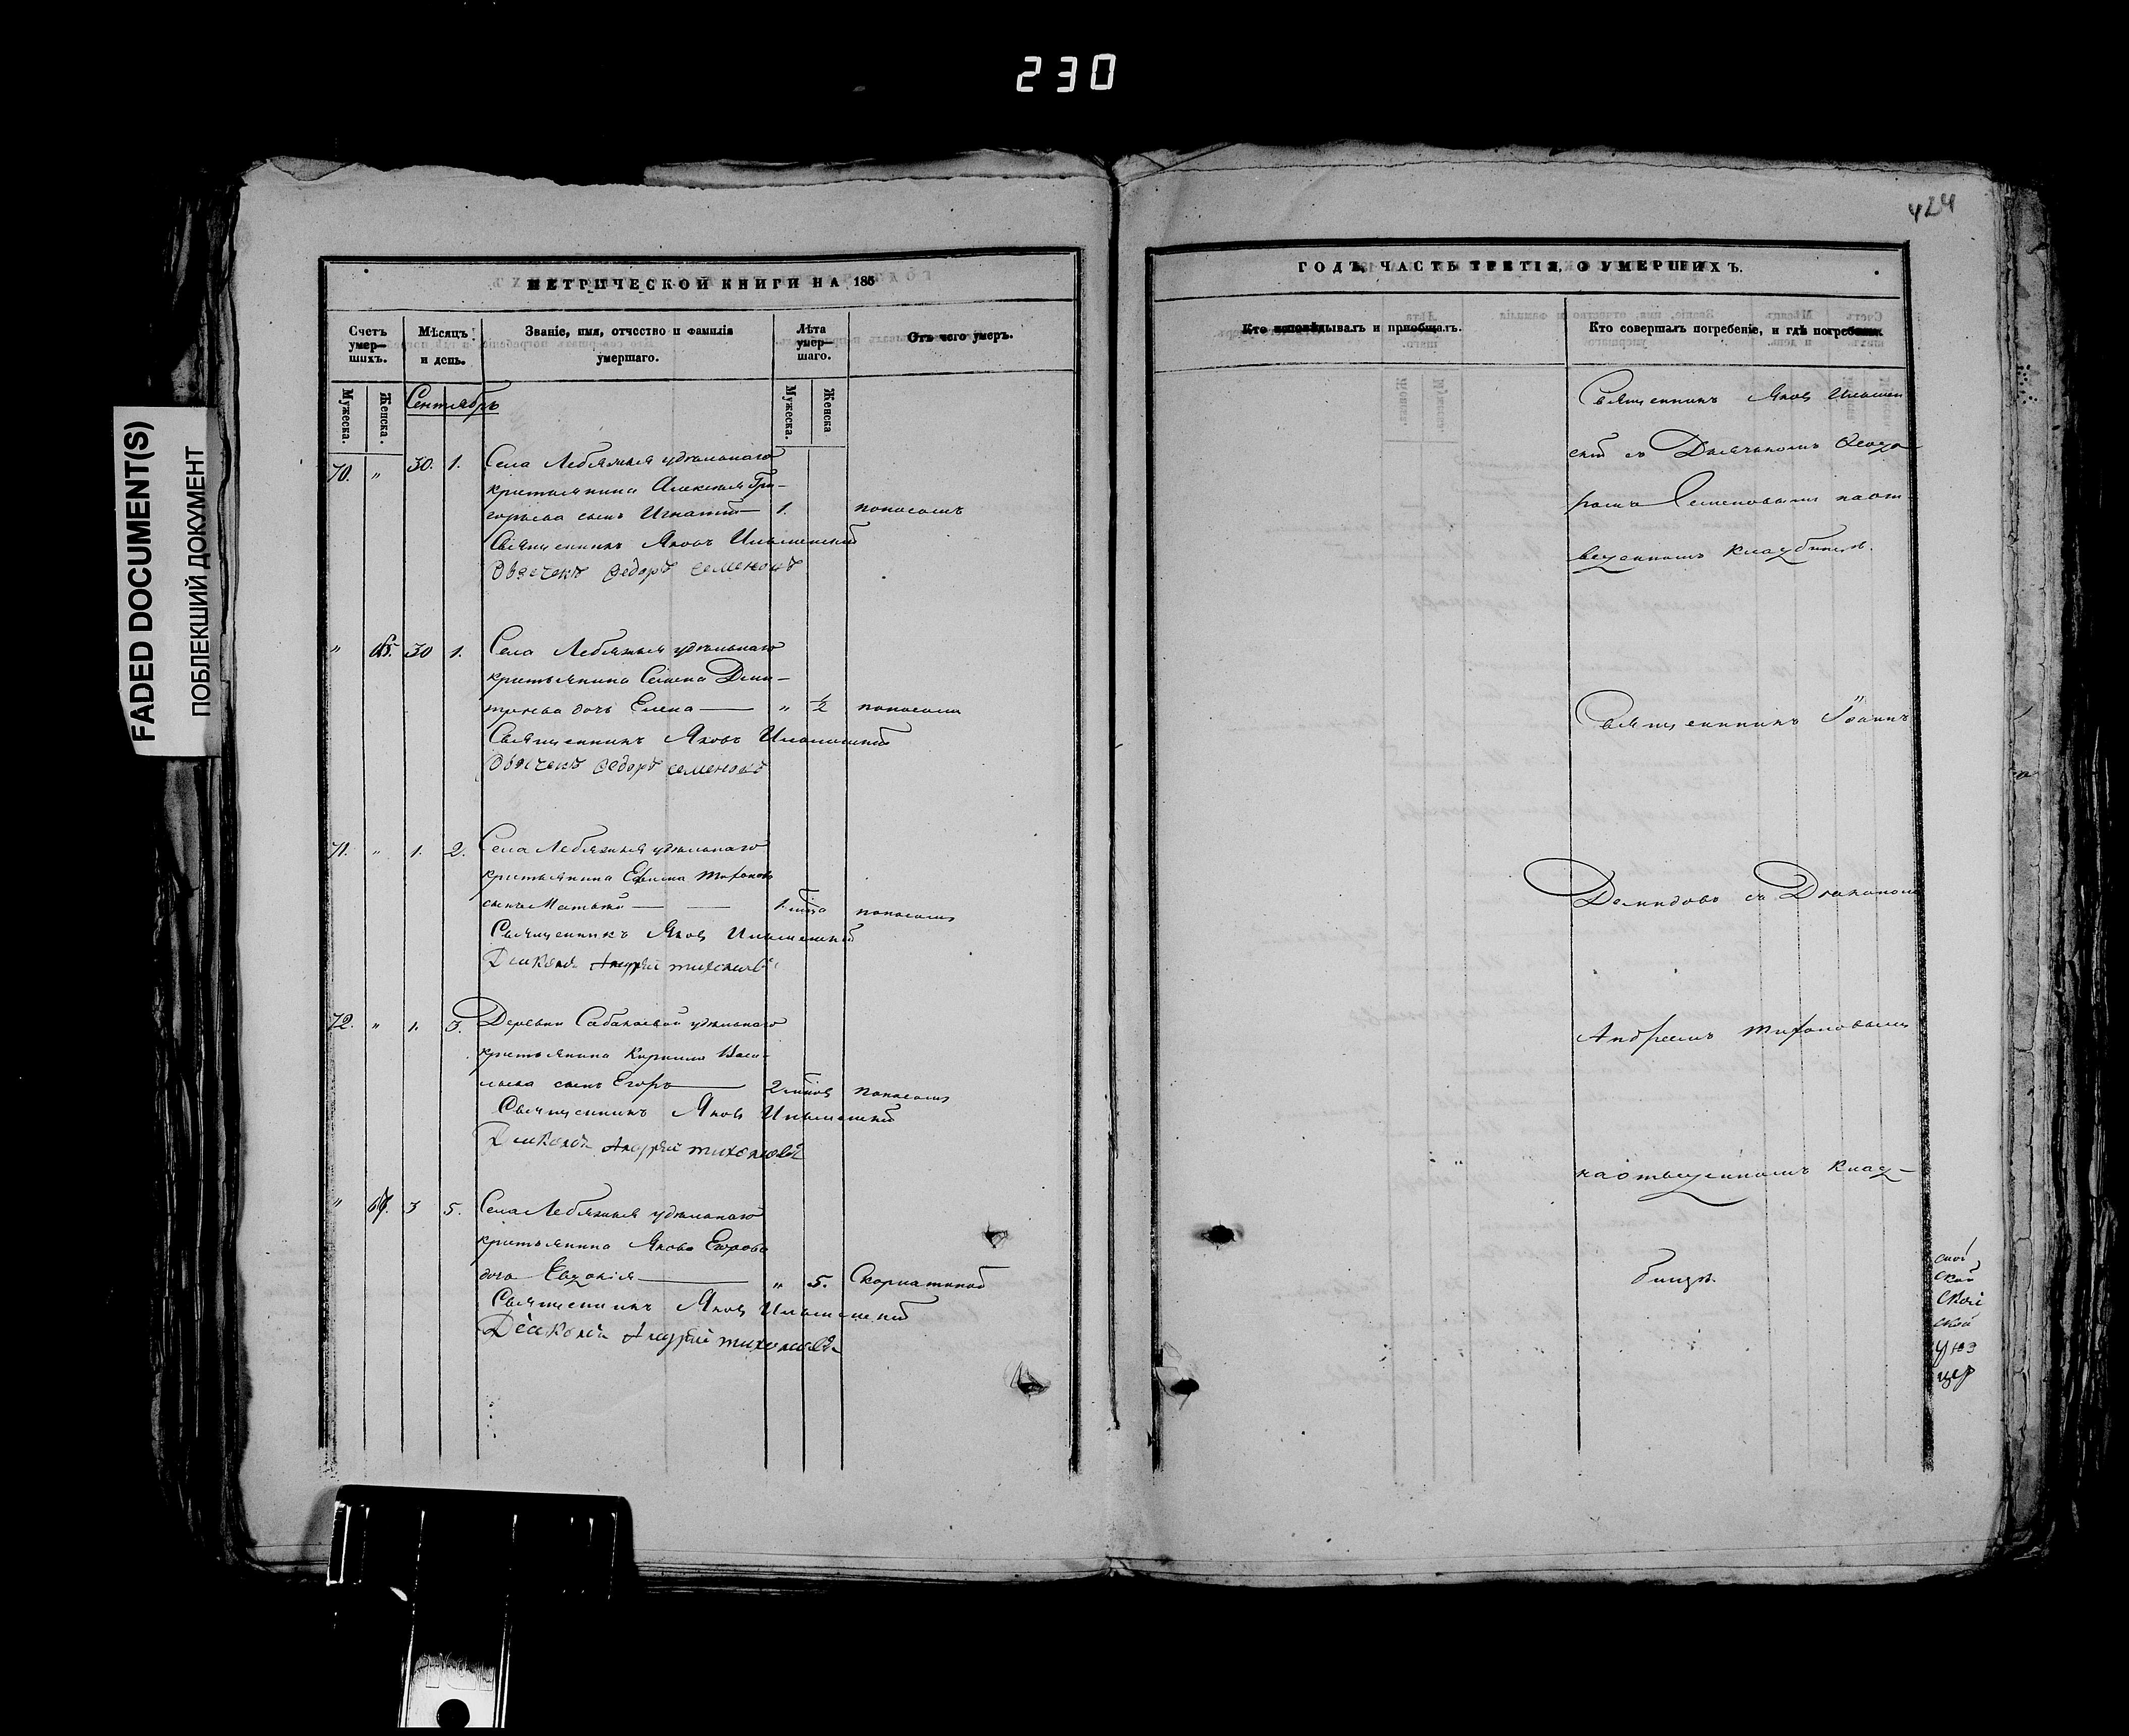 230
FADED DOCUMENT(S)
ПОБЛЕКШИЙ ДОКУМЕНТ
424
МЕТРИЧЕСКОЙ КНИГИ НА 185
Счетъ умер-шихъ.
Мѣсяцъ и день.
Званіе, имя, отчество и фамилія умершаго.
Лѣта умер-шаго.
Отъ чего умеръ.
Мужеска. Женска. Сентябрь Мужеска. Женска
70. " 30. 1. Села Лебяжья удѣльнаго
крестьянина Алексѣя Гри-
горьева сынъ Игнатій 1. поносомъ
Священникъ Яковъ Ильменскій
Дьячекъ Федоръ Семеновъ
" 65. 30 1. Села Лебяжья удѣльнаго
крестьянина Семена Дми-
тріева дочь Елена " ½ поносомъ
Священникъ Яковъ Ильменскій
Дьячекъ Федоръ Семеновъ
71. " 1. 2. Села Лебяжья удѣльнаго
крестьянина Ефима Тихонова
сынъ 1. поносомъ
Священникъ Яковъ Ильменскій
Діаконъ Андрей Тихоновъ
72. " 1. 3. Деревни удѣльнаго
крестьянина Кирилла Васи-
льева сынъ Егоръ 2 поносомъ
Священникъ Яковъ Ильменскій
Діаконъ Андрей Тихоновъ
" 3 5. Села Лебяжья удѣльнаго
крестьянина Якова Егорова
дочь Евдокія " 5. Скорлатиной
Священникъ Яковъ Ильменскій
Діаконъ Андрей Тихоновъ
ГОДЪ, ЧАСТЬ ТРЕТІЯ, О УМЕРШИХЪ.
Кто исповѣдывалъ и пріобщалъ.
Кто совершалъ погребеніе, и гдѣ погребены.
Священникъ Яковъ Ильмен
скій съ Дьячькомъ Феодо
ромъ Семеновымъ на от-
веденномъ кладбищѣ.
Священникъ Іоаннъ
Демидовъ съ Діакономъ
Андреемъ Тихоновымъ
на отведенномъ клад-
бищѣ.
ской
ской
ской